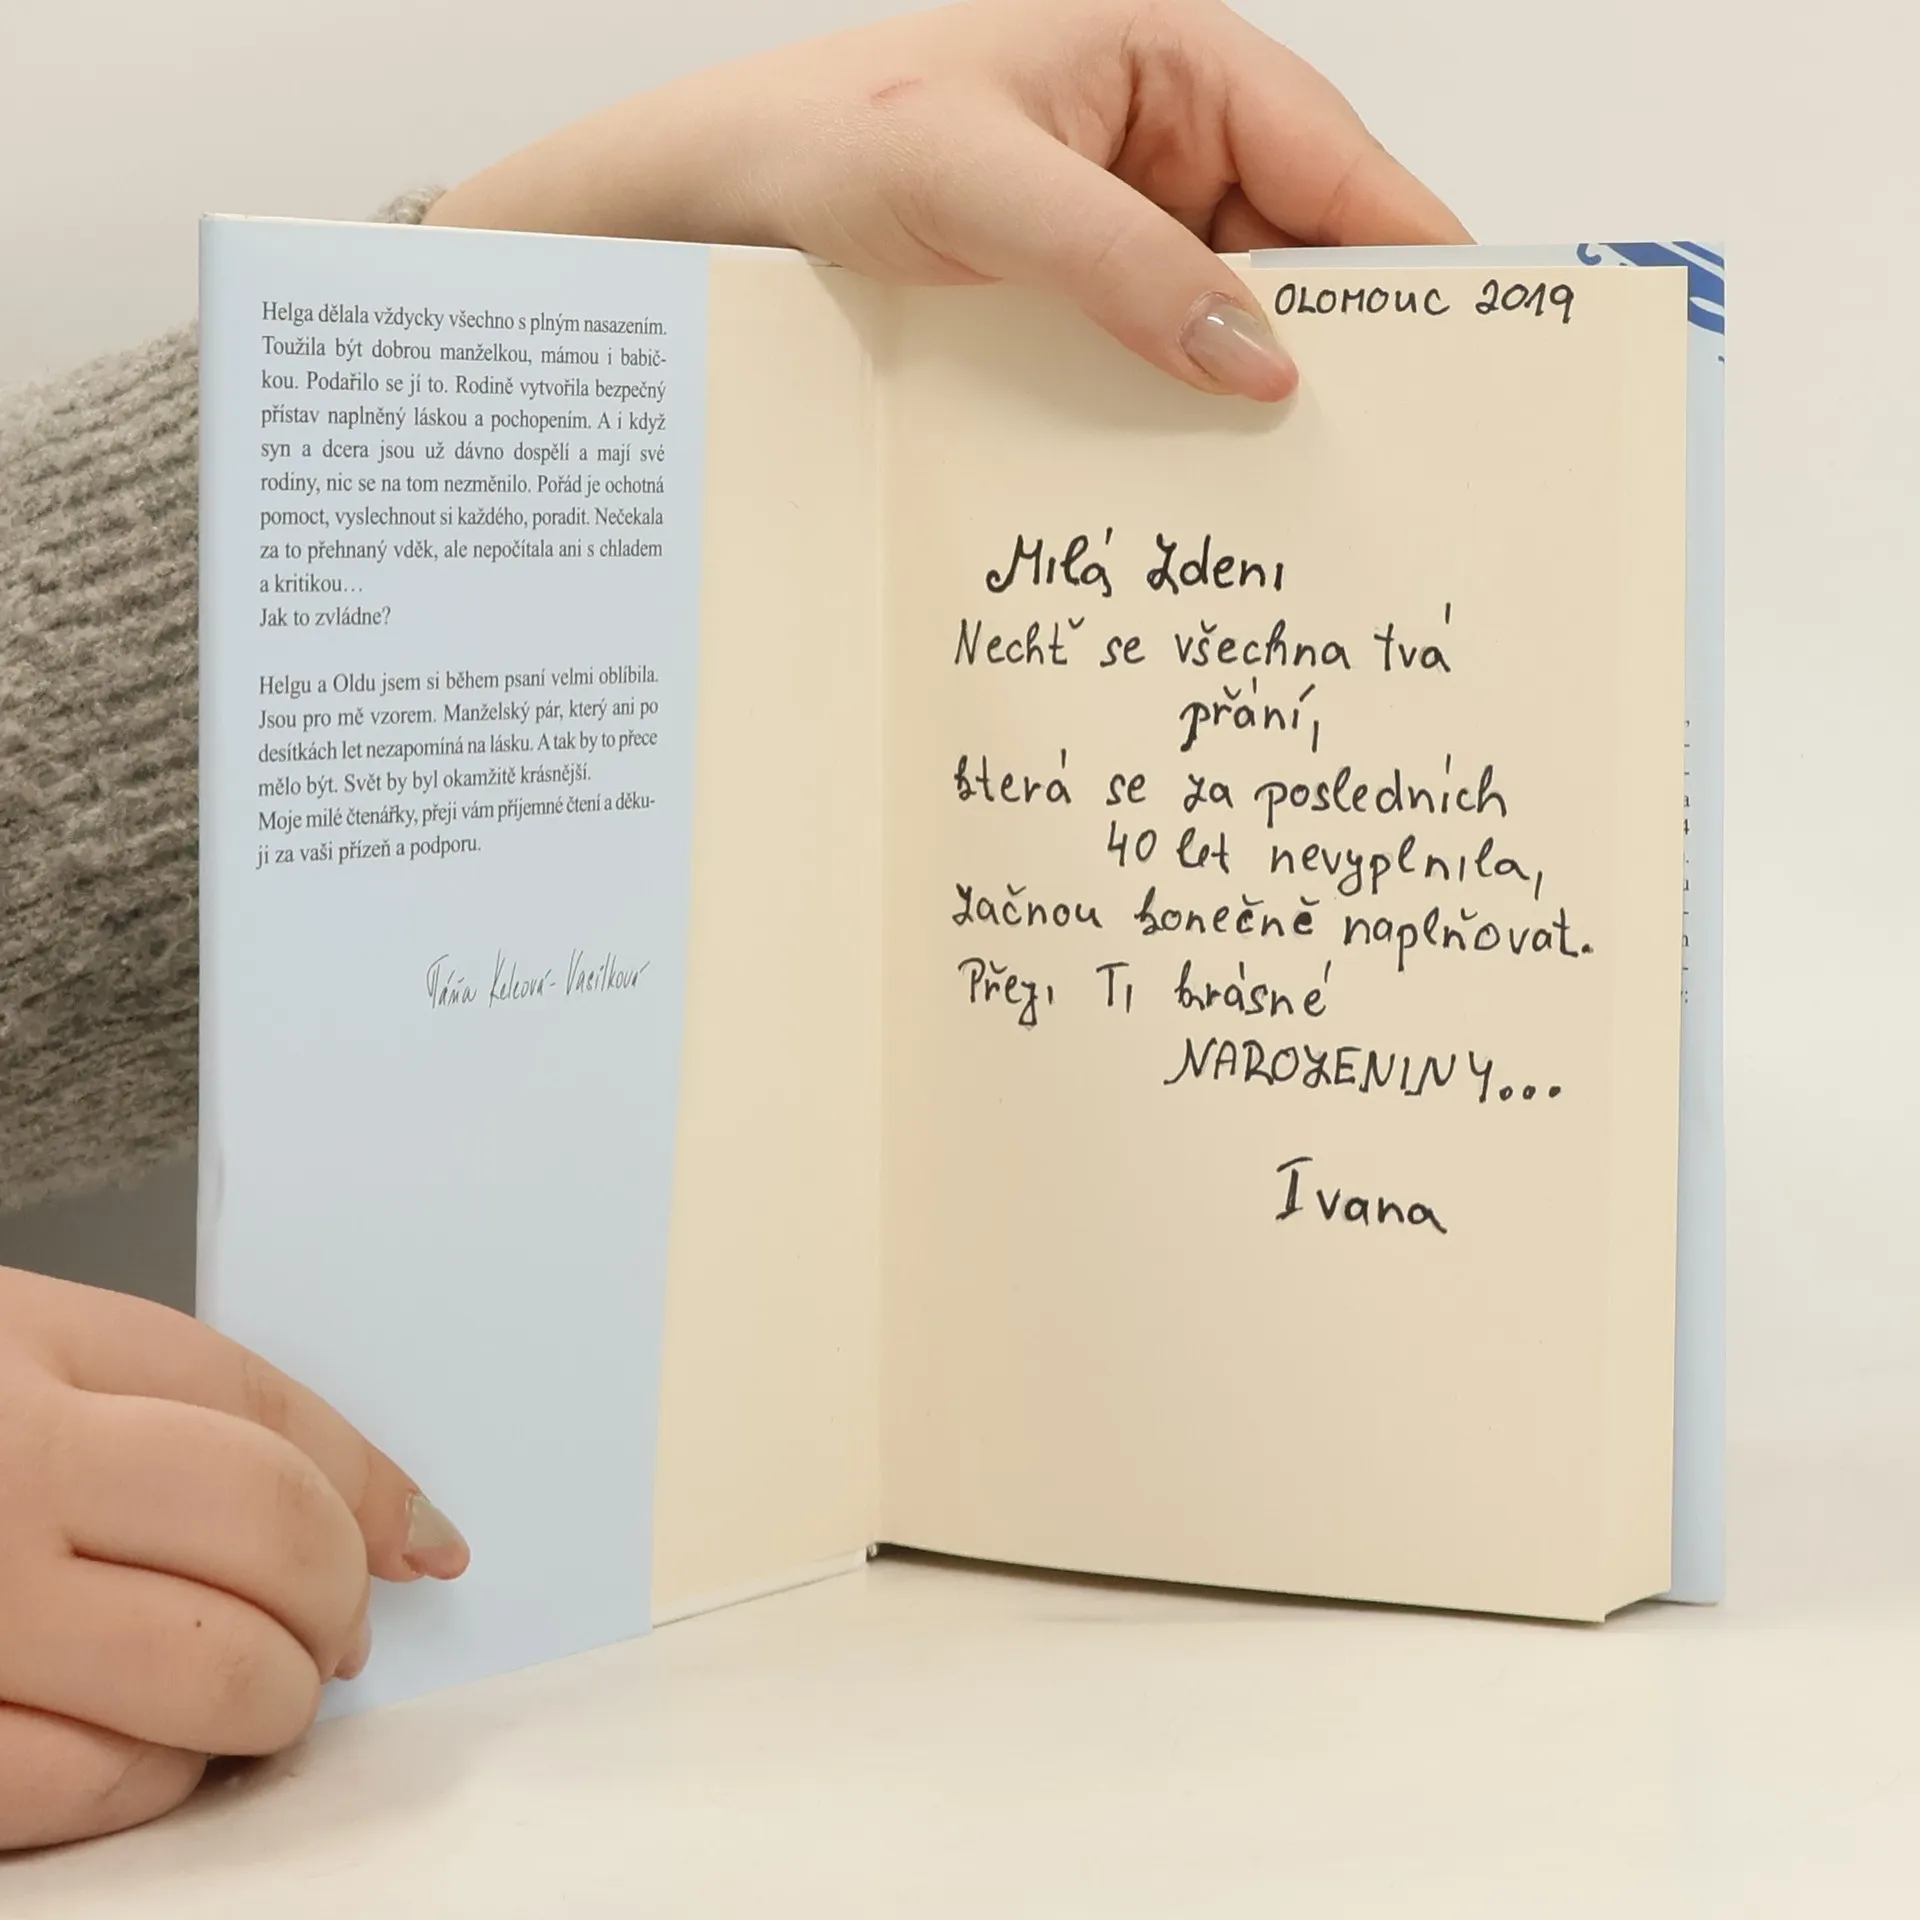 Helga dělala vždycky všechno s plným nasazením.
Toužila být dobrou manželkou, mámou i babič-
kou. Podařilo se jí to. Rodině vytvořila bezpečný
přístav naplněný láskou a pochopením. A i když
syn a dcera jsou už dávno dospělí a mají své
rodiny, nic se na tom nezměnilo. Pořád je ochotná
pomoct, vyslechnout si každého, poradit. Nečekala
za to přehnaný vděk, ale nepočítala ani s chladem
a kritikou…
Jak to zvládne?
Helgu a Oldu jsem si během psaní velmi oblíbila.
Jsou pro mě vzorem. Manželský pár, který ani po
desítkách let nezapomíná na lásku. A tak by to přece
mělo být. Svět by byl okamžitě krásnější.
Moje milé čtenářky, přeji vám příjemné čtení a děku-
ji za vaši přízeň a podporu.
Táňa Keleová-Vasilková
OLOMOUC 2019
Milá Zdeni
Nechť se všechna tvá
přání,
která se za posledních
40 let nevyplnila,
začnou konečně naplňovat.
Přeji Ti krásné
NAROZENINY...
Ivana